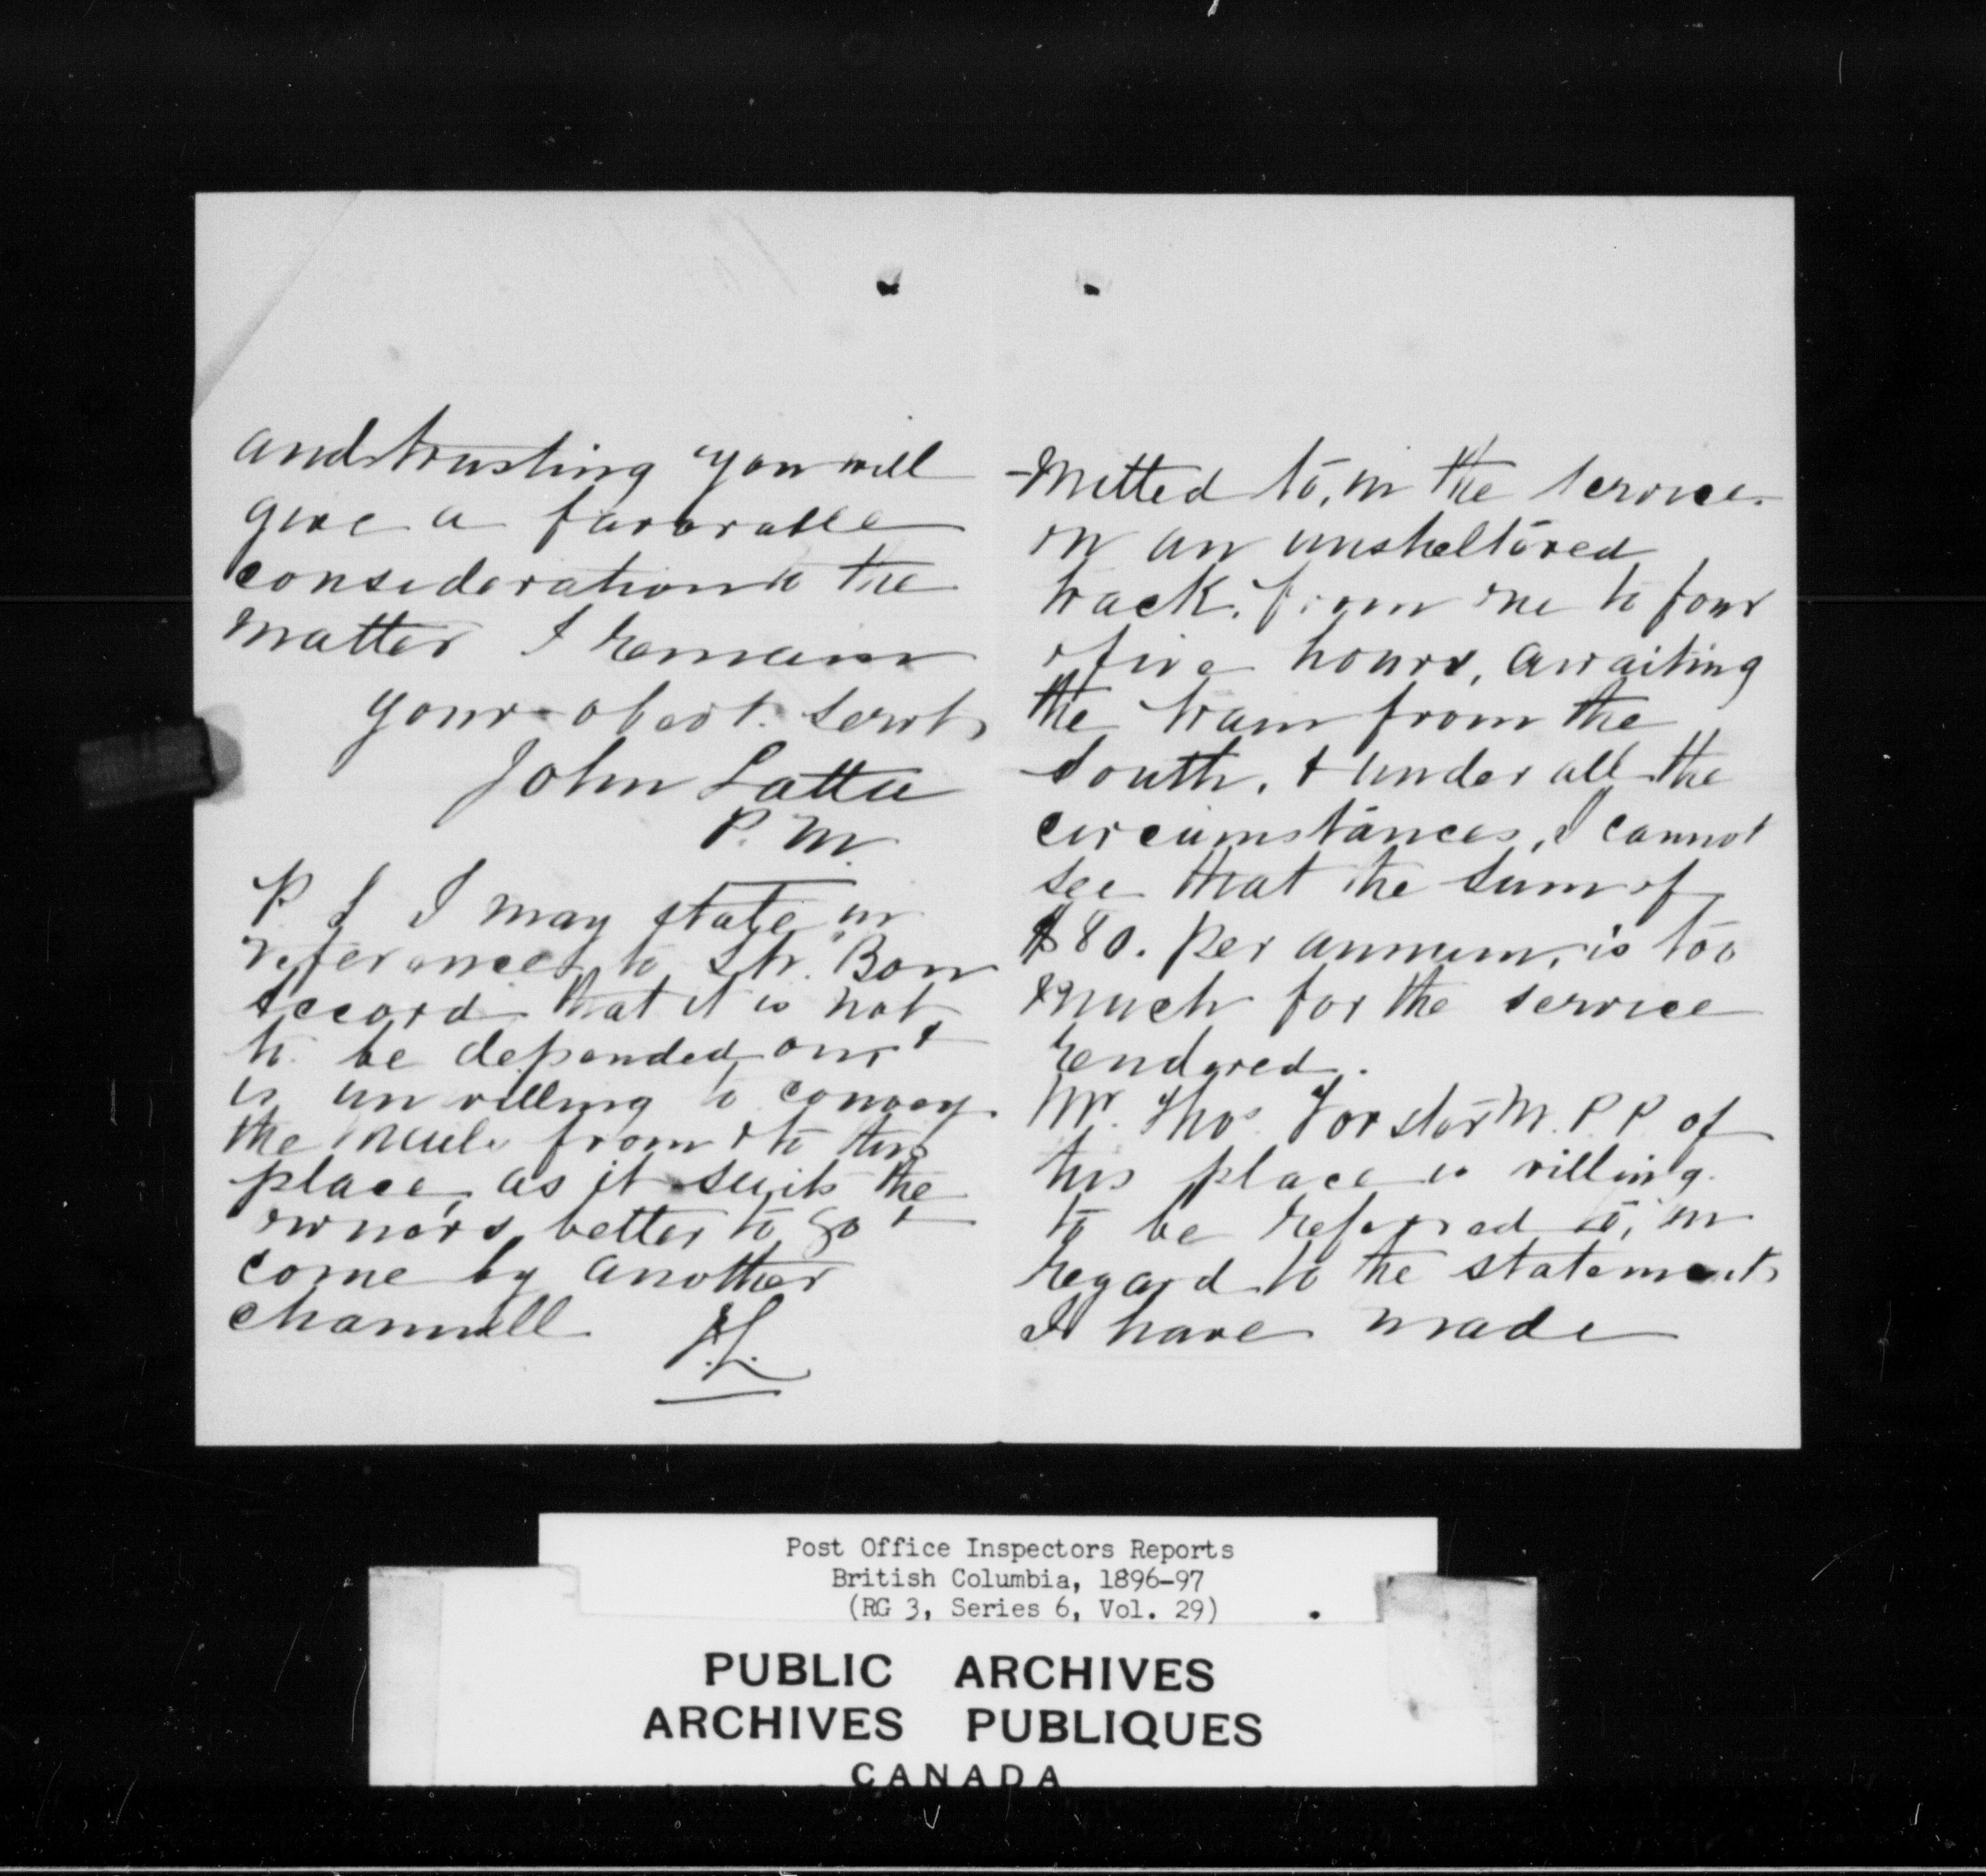 and trusting you will
give a favorable
consideration to the
matter I remain
your obedt. servt,
John Latta
P. M.
P. S I may state in
reference to Str. Bon
Accord that it is not
to be depended on, &
is unwilling to convey
the mails from & to this
place, as it suits the
owners, better to go &
come by another
channell. J.L.
-mitted to, in the service.
on an unsheltered
track. from one to four
or five hours, awaiting
the train from the
South, & under all the
circumstances, I cannot
see that the sum of
$80. per annum, is too
much for the service
rendered.
Mr. Thos. Forster M.P.P. of
this place is willing
to be referred to, in
regard to the statements
I have made
Post Office Inspectors Reports
British Columbia, 1896-97
(RG 3, Series 6, Vol. 29)
PUBLIC ARCHIVES
ARCHIVES PUBLIQUES
CANADA